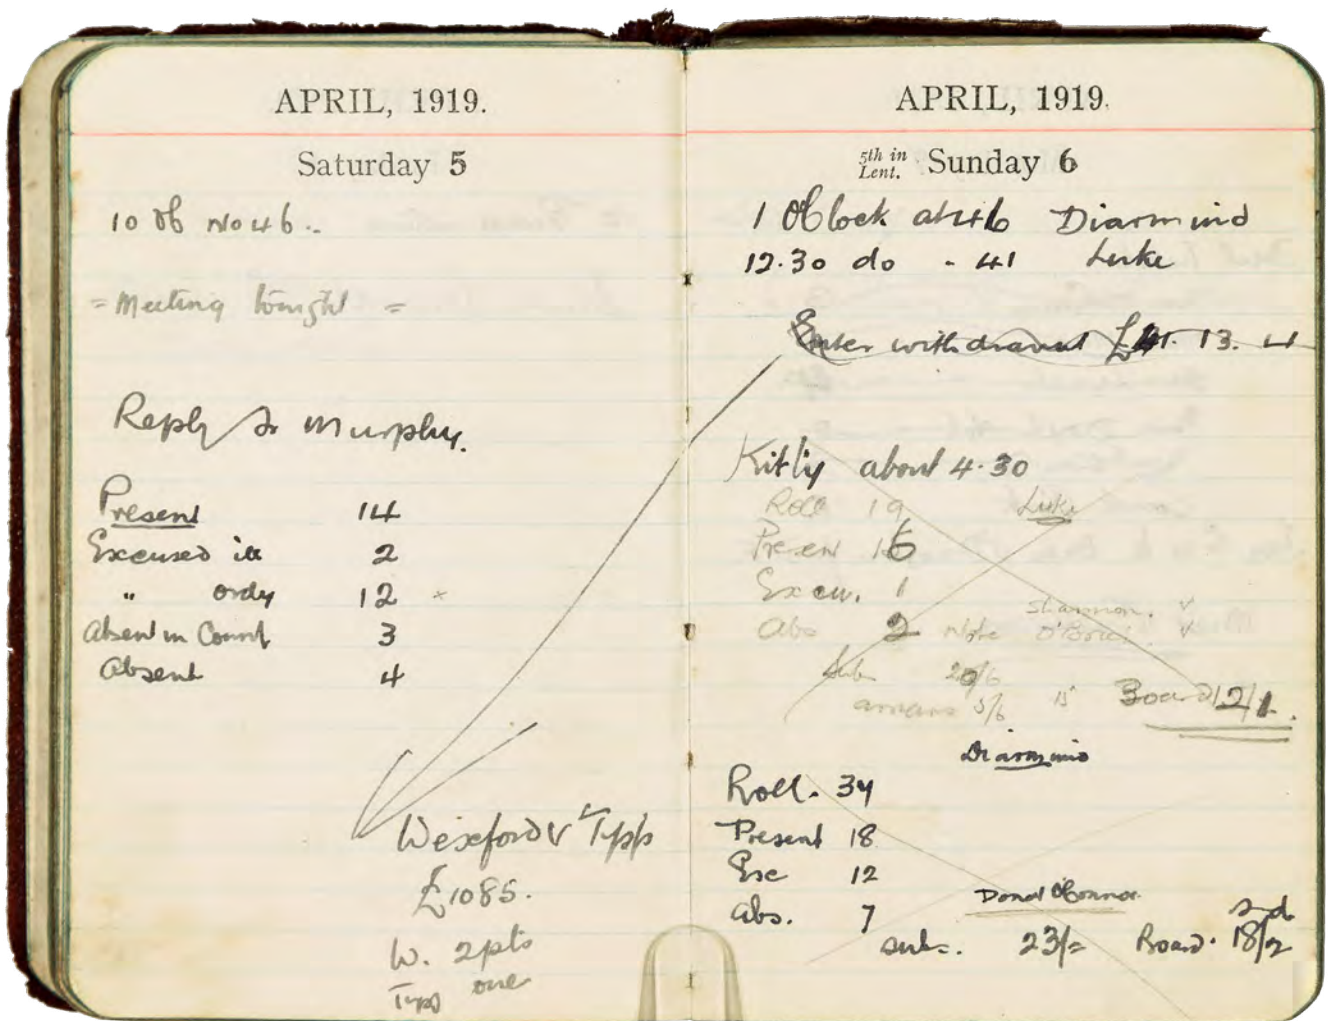 APRIL, 1919.
Saturday 5
10 Oc No 46..
= Meeting tonight =
Reply to Murphy.
Present 14
Excused ill 2
" ordy 12 x
Absent in Count 3
Absent 4
Wexford v Tipp
£1085.
W. 2pts
Tipp one
APRIL, 1919.
5th in Lent. Sunday 6
1 O'Clock at 46 Diarmuid
12.30 do - 41 Luke
Enter withdrawal £41. 13. 4
Kitty about 4.30
Roll 19 Luke
Presen 16
Excu. 1
Shannon. v
Abs 2 Note O'Brien v
Subs 20/6
arrears 5/6 15 Board 12/1.
Diarmuid
Roll. 34
Present 18
Exc 12
Donal O'Connor.
Abs. 7
s d
subs. 23/= Board. 18/2